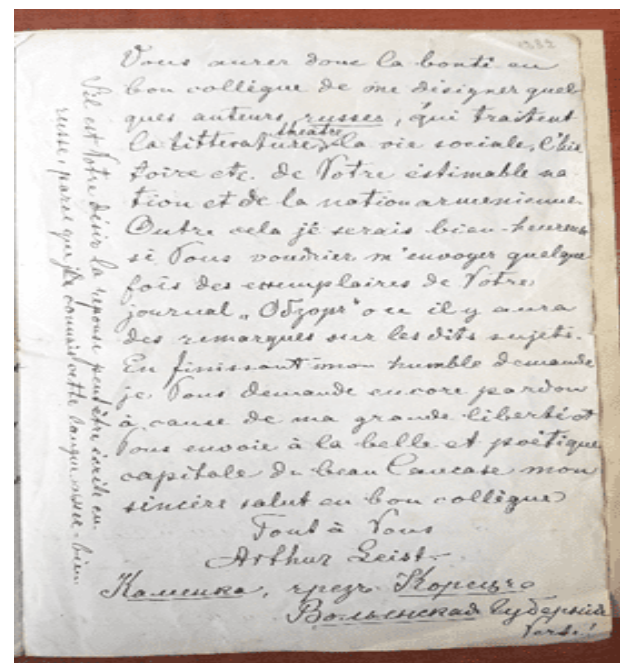 1882
Vous aurez donc la bonté en
bon collègue de me désigner quel-
ques auteurs russes, qui traitent
théatre
la littérature, la vie sociale, l'his
toire etc. de Votre estimable na
tion et de la nation armenienne.
Outre cela je serais bien heureux
si Vous voudriez m'envoyer quelque
fois des exemplaires de Votre
journal „Обзоръ" ou il y aura
des remarques sur les dits sujets.
En finissant mon humble demande
je Vous demande encore pardon
à cause de ma grande liberté et
Vous envoie à la belle et poétique
capitale du beau Caucase mon
sincère salut en bon collègue
Tout à Vous
Arthur Leist.
Каменка, чрезъ Корецъ
Волынская Губернія
Verte!
S'il est Votre désir la reponse peut être écrite en
russe, parce que je connais cette langue assez bien